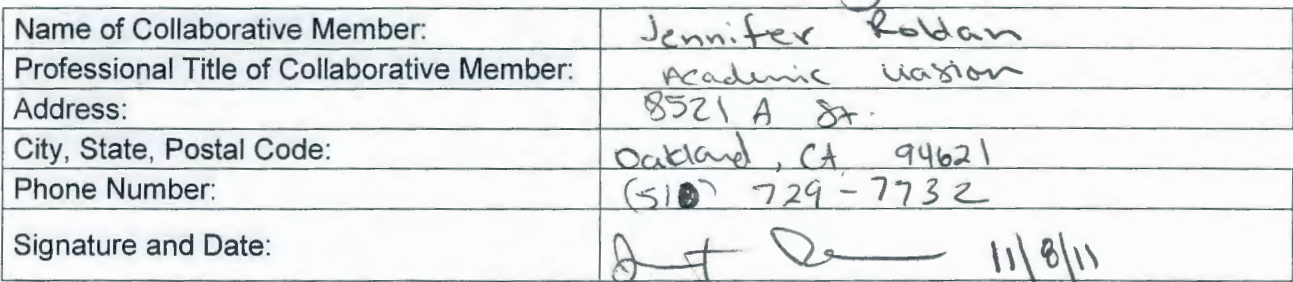 Name of Collaborative Member: Jennifer Roldan
Professional Title of Collaborative Member: Academic liasion
Address: 8521 A St.
City, State, Postal Code: Oakland, CA 94621
Phone Number: (510) 729-7732
Signature and Date: 11/8/11